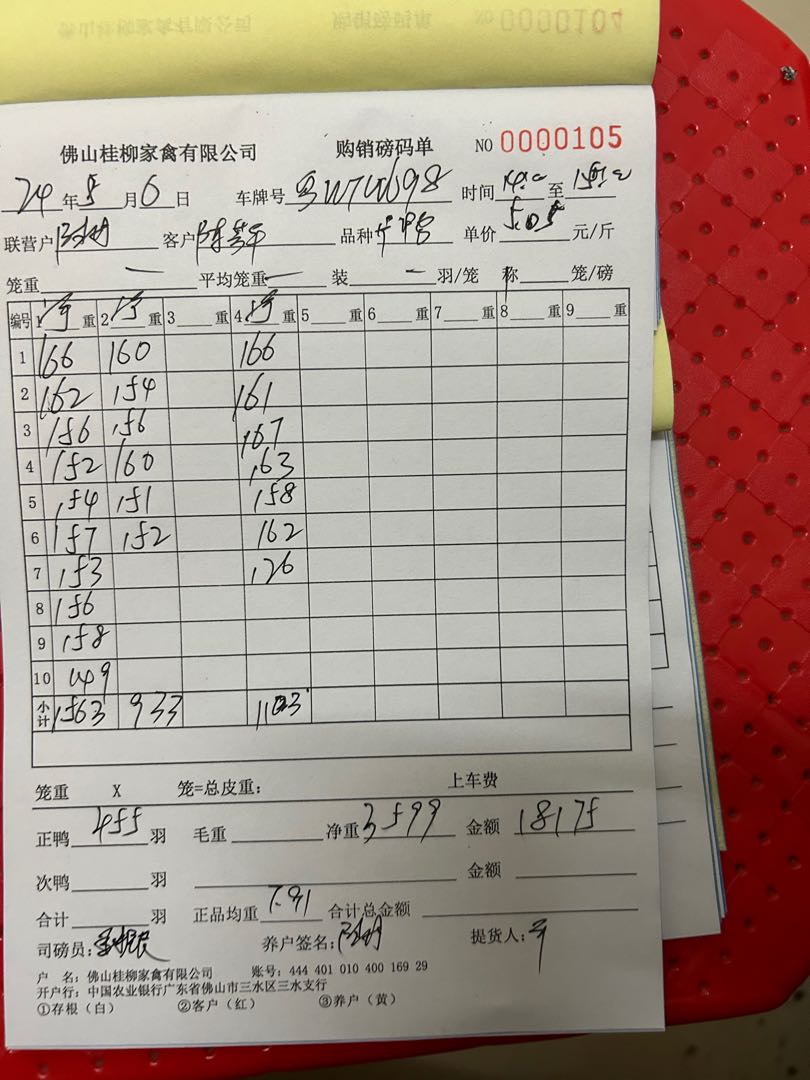 佛山桂柳家禽有限公司 购销磅码单 NO 0000105
24年5月6日 车牌号 时间 至
联营户 客户 品种 单价 5.05 元/斤
笼重 一 平均笼重 一 装 一 羽/笼 称 笼/磅
编号 1 重 2 重 3 重 4 重 5 重 6 重 7 重 8 重 9 重
1 166 160 166
2 162 154 161
3 156 156 167
4 152 160 163
5 154 151 158
6 157 152 162
7 153 126
8 156
9 158
10 149
小计 1563 933 1103
笼重 X 笼=总皮重: 上车费
正鸭 455 羽 毛重 净重 3599 金额 18175
次鸭 羽 金额
合计 羽 正品均重 7.91 合计总金额
司磅员: 养户签名: 提货人:
户 名: 佛山桂柳家禽有限公司 账号: 444 401 010 400 169 29
开户行: 中国农业银行广东省佛山市三水区三水支行
①存根（白） ②客户（红） ③养户（黄）